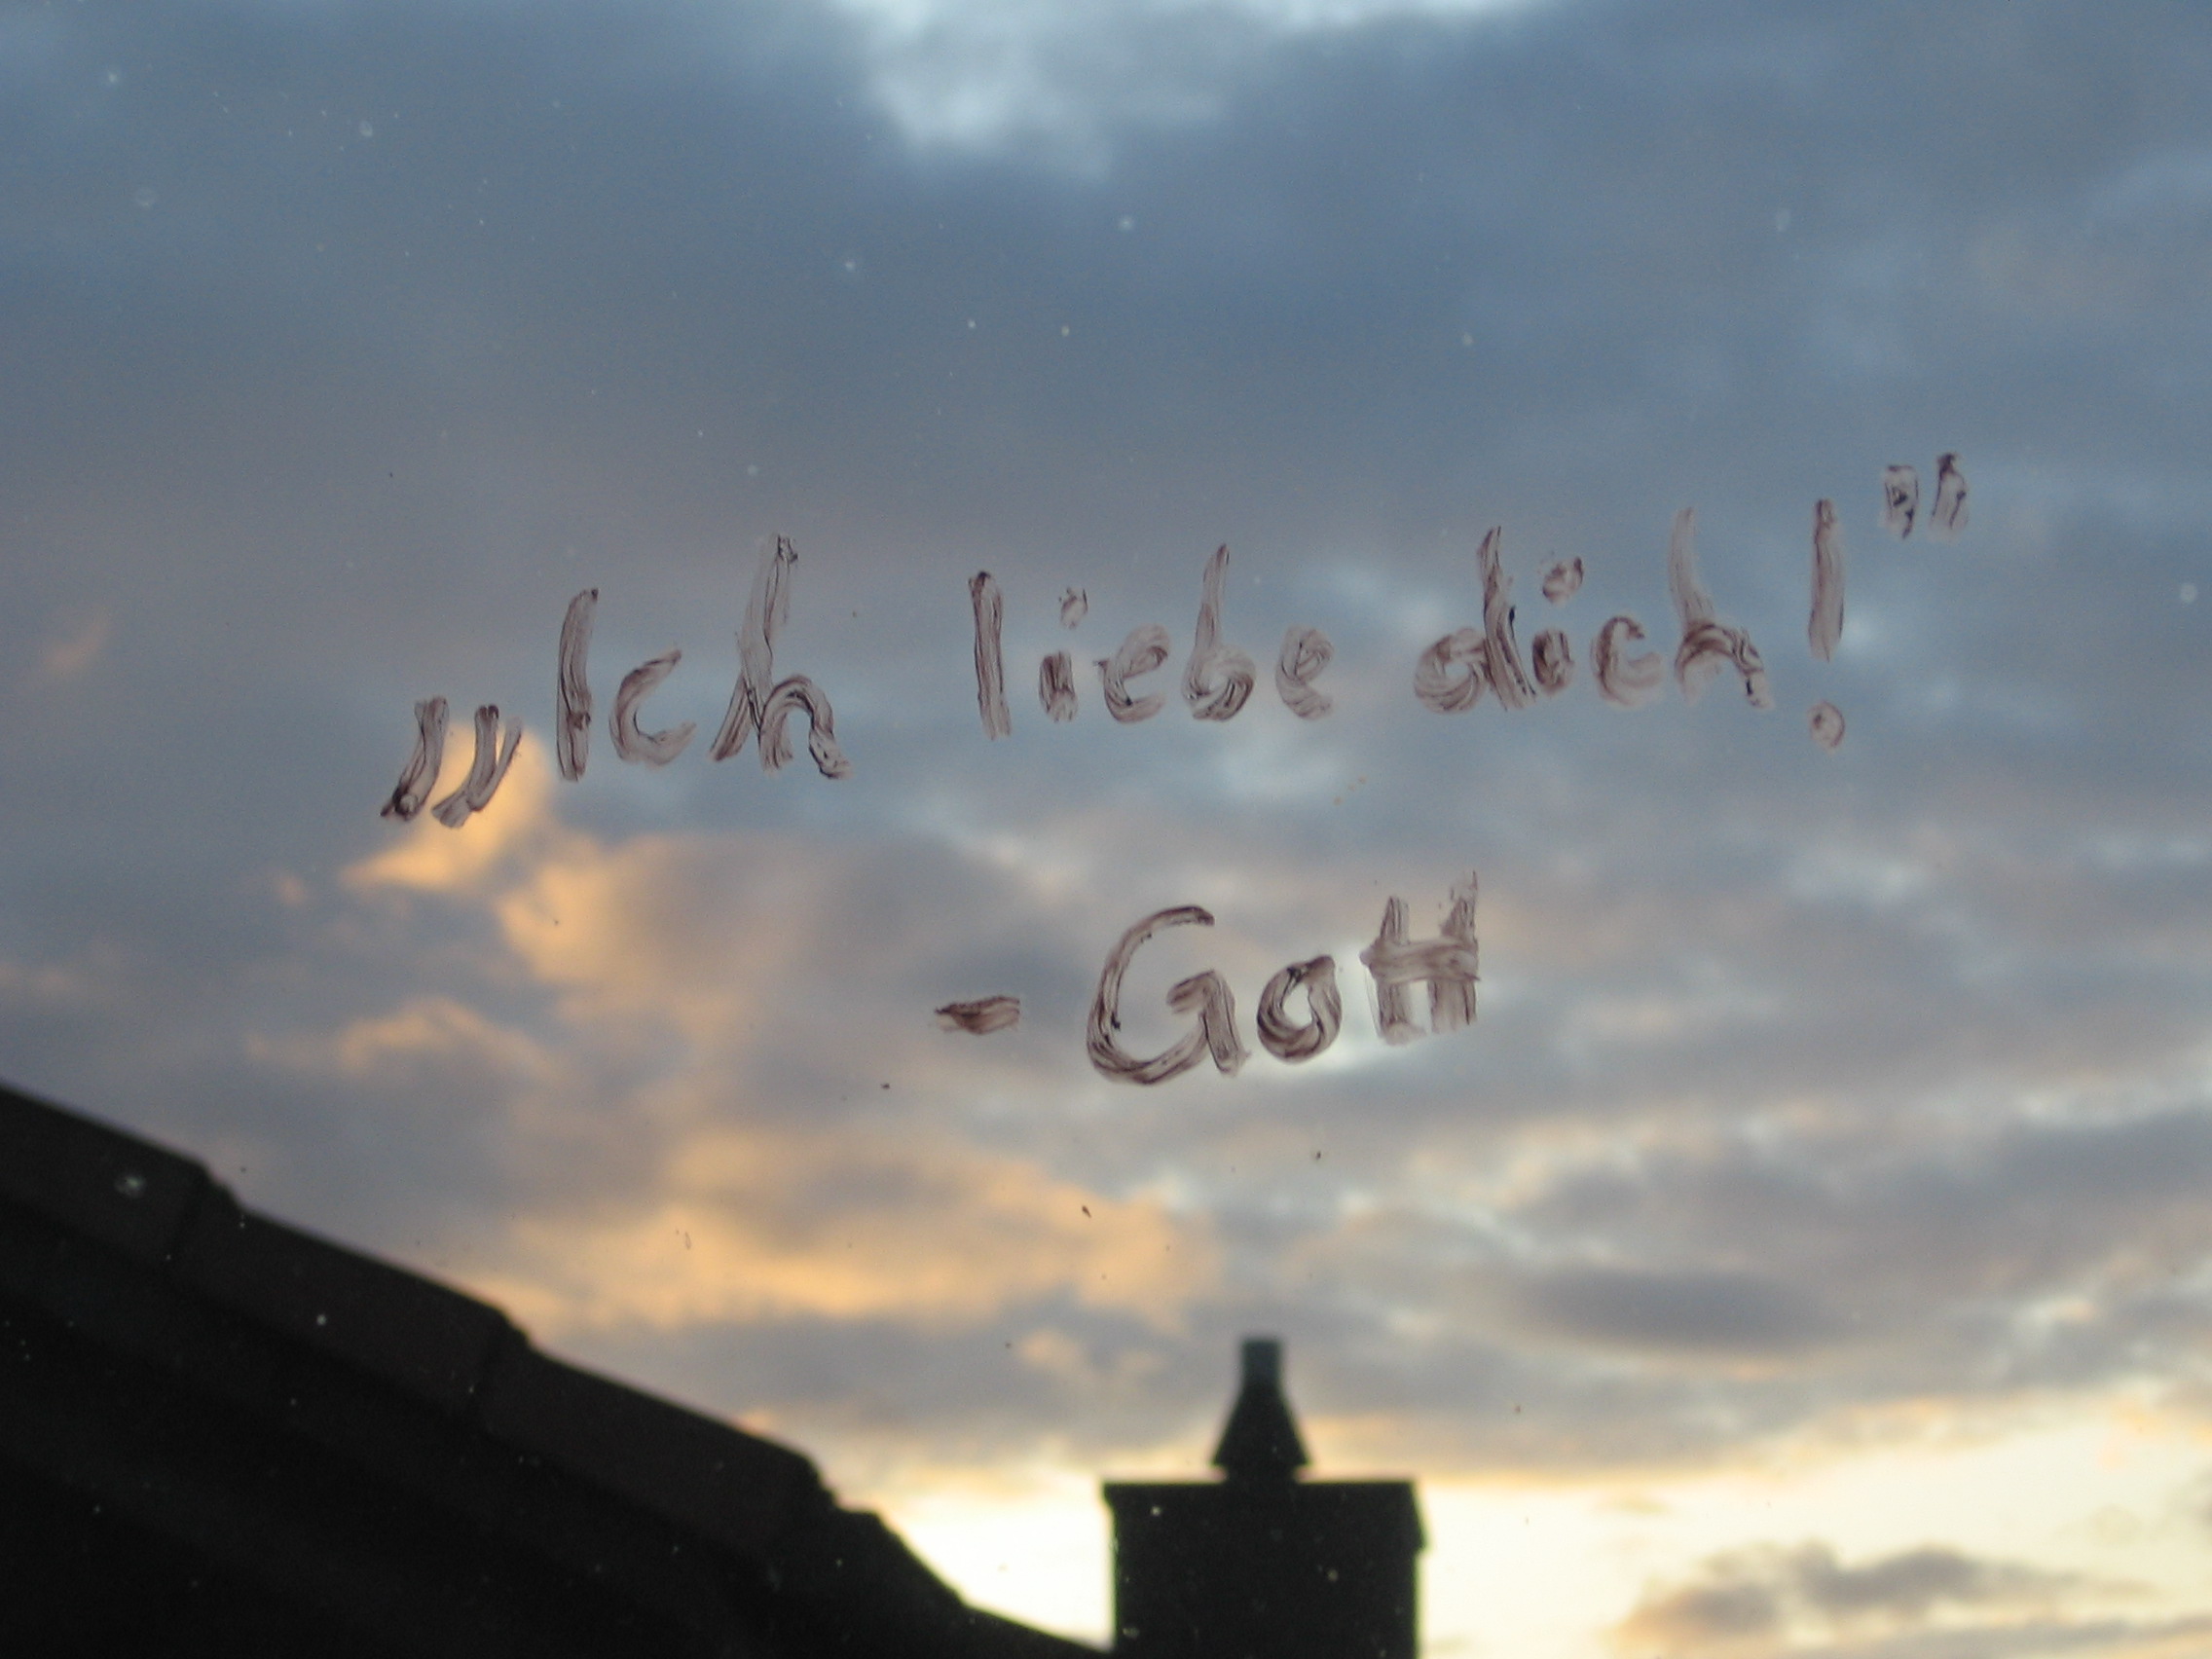 „Ich liebe dich!"
- Gott